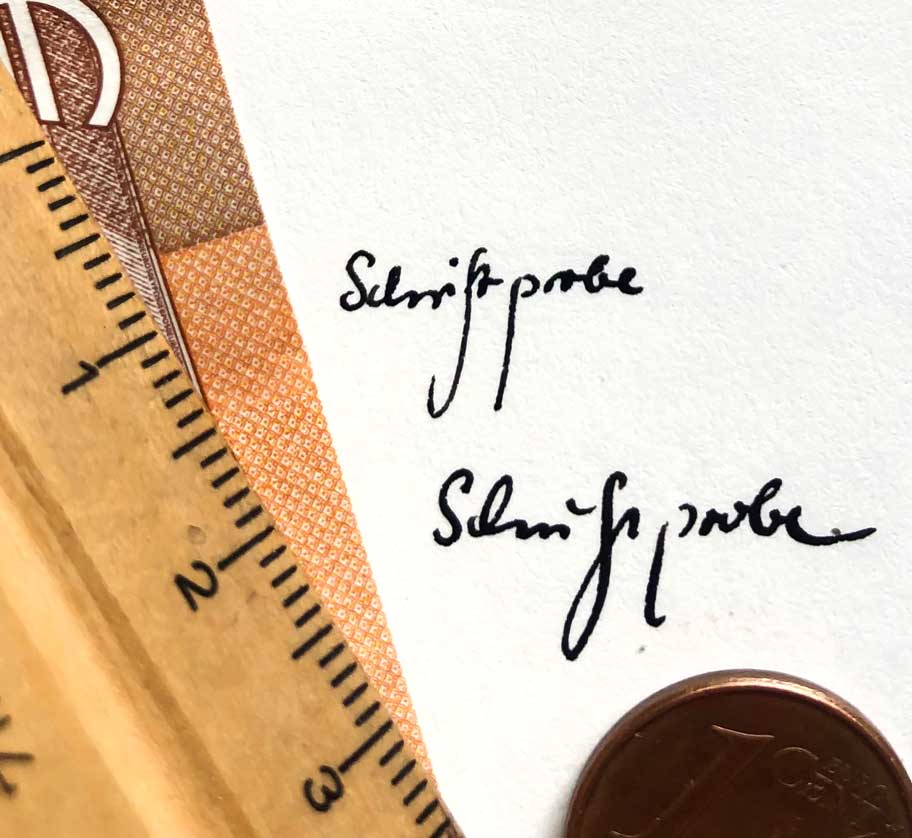 Schriftprobe
Schriftprobe
1
2
3
1
EURO
CENT